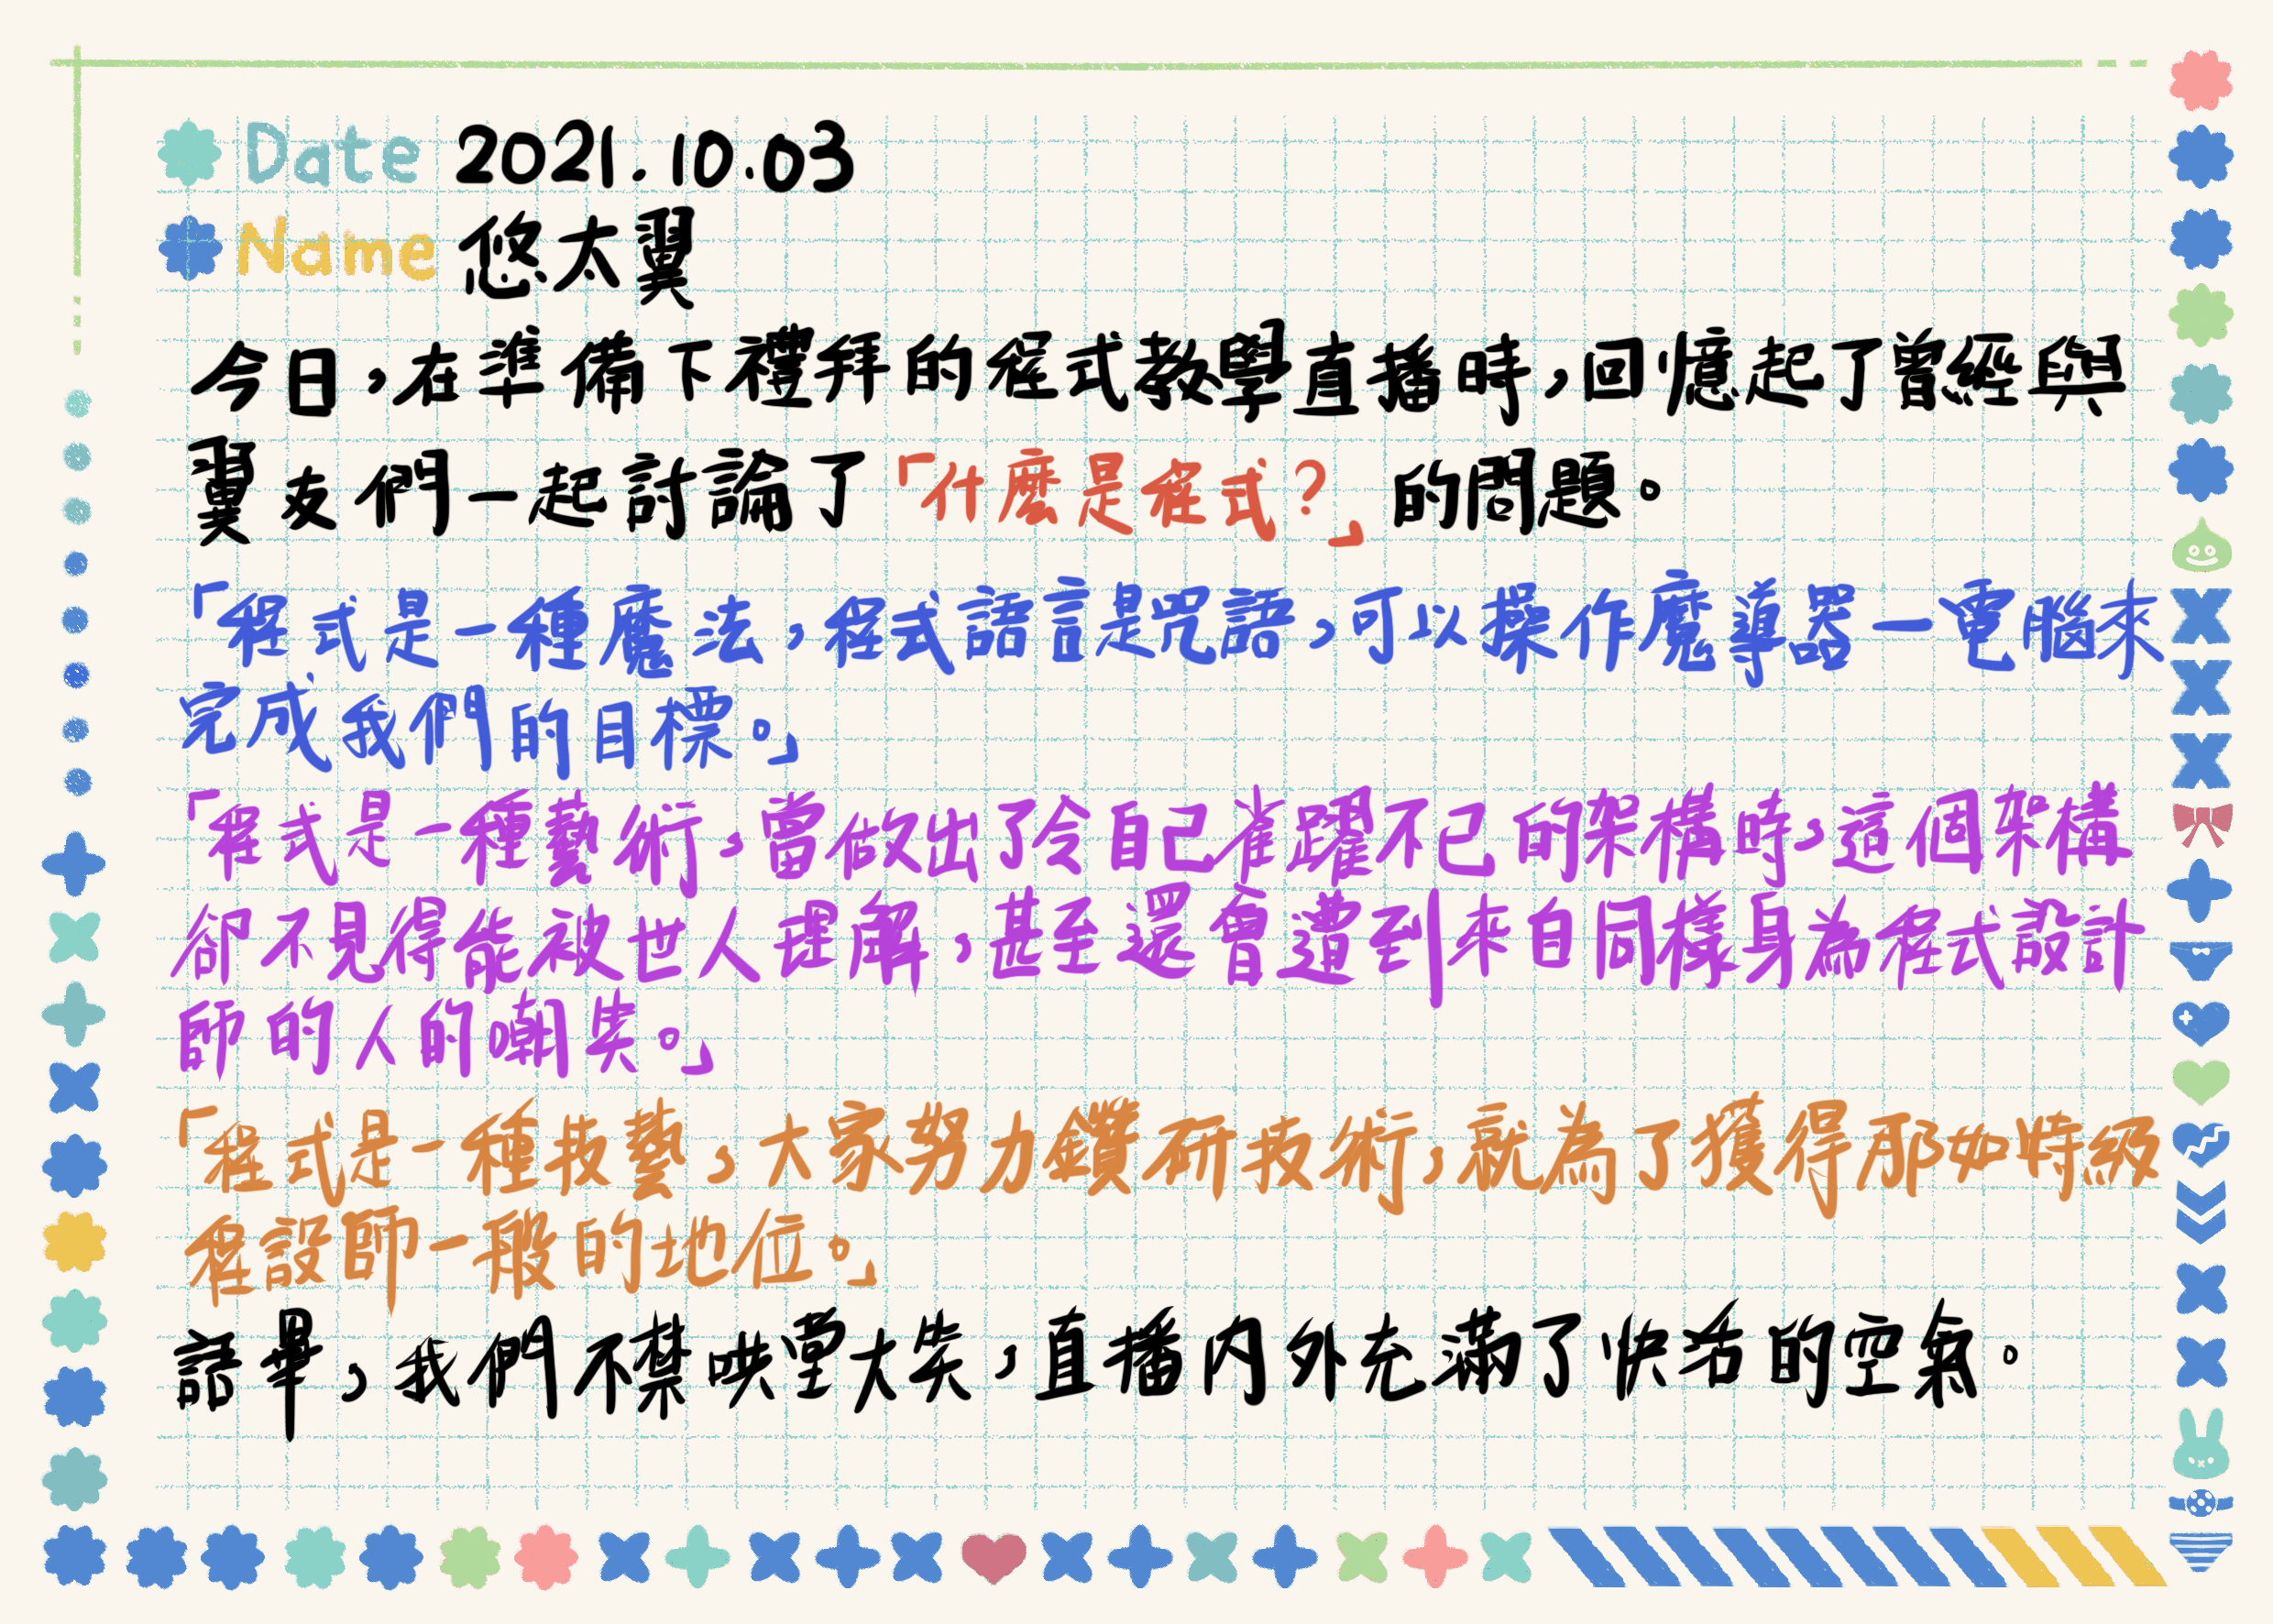 Date 2021.10.03
Name 悠太翼
今日,在準備下禮拜的程式教學直播時,回憶起了曾經與
翼友們一起討論了「什麼是程式?」的問題。
「程式是一種魔法,程式語言是咒語,可以操作魔導器—電腦來
完成我們的目標。」
「程式是一種藝術,當做出了令自己雀躍不已的架構時,這個架構
卻不見得能被世人理解,甚至還會遭到來自同樣身為程式設計
師的人的嘲笑。」
「程式是一種技藝,大家努力鑽研技術,就為了獲得那如特級
程設師一般的地位。」
語畢,我們不禁哄堂大笑,直播内外充滿了快活的空氣。